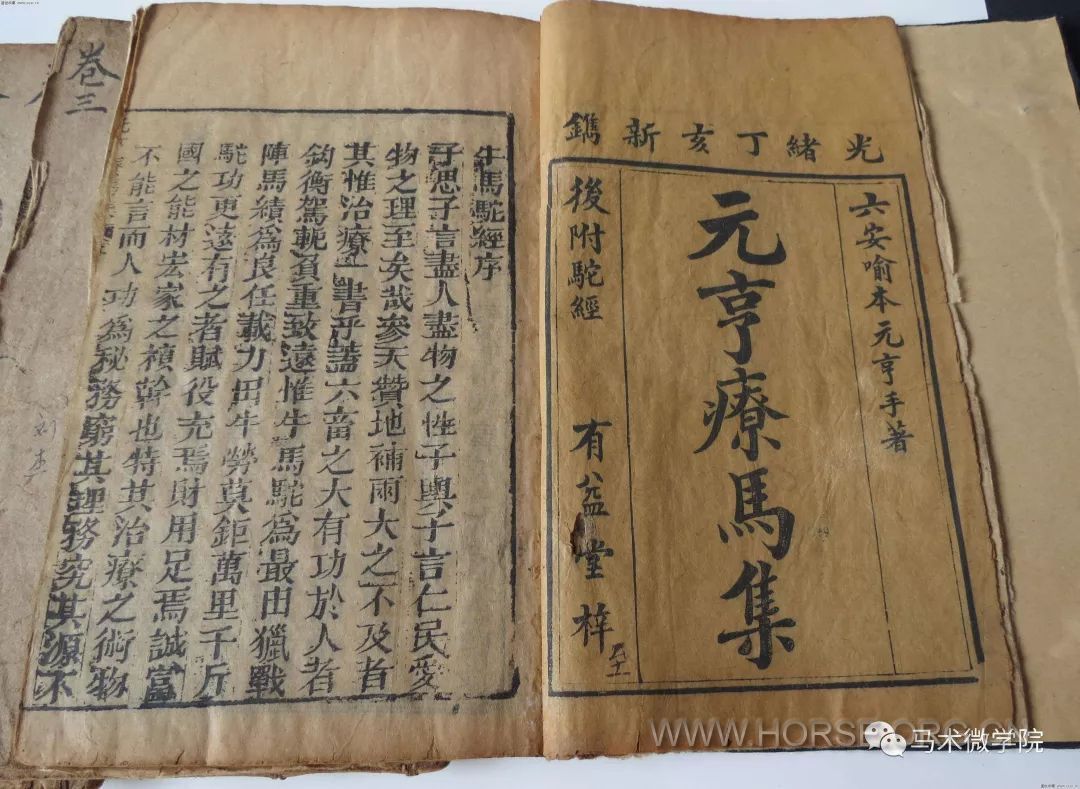 光緒丁亥新鐫
六安喻本元亨手著
元亨療馬集
後附駝經
有益堂梓
牛馬駝經序
子思子言盡人盡物之性子輿子言仁民愛
物之理至矣哉參天贊地補雨大之不及者
其惟治療一書乎蓋六畜之大有功於人者
鈎衡駕軛負重致遠惟牛馬駝為最由獵戰
陣馬績為良任載力田牛勞莫鉅萬里千斤
駝功更遠有之者賦役充焉財用足焉誠當
國之能材宏家之禎幹也特其治療之術物
不能言而人功為秘務窮其理務究其源不
卷三
WWW.HORSE.ORG.CN
马术微学院